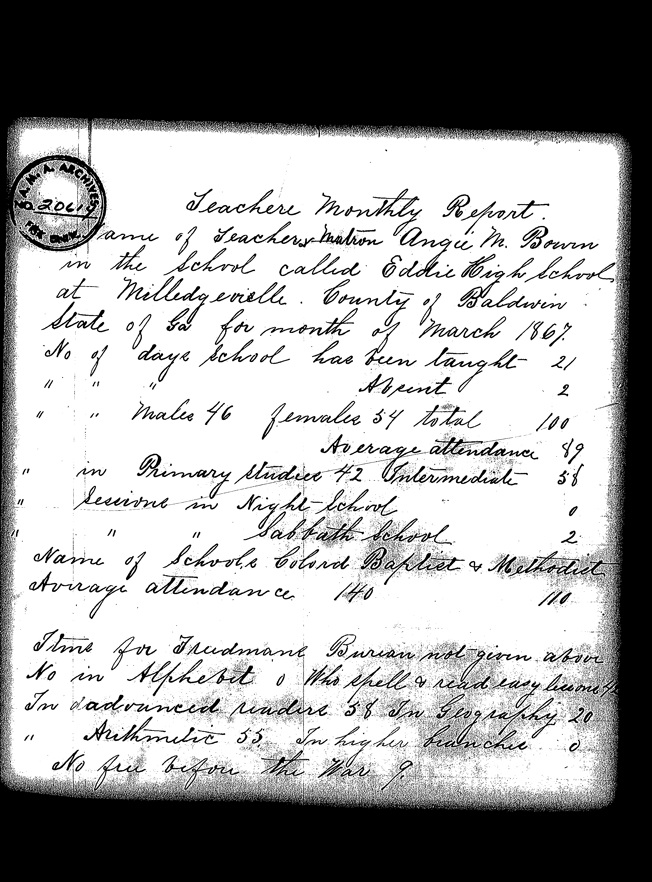 A.M.A. ARCHIVES
No. 20619
FISK UNIV.
Teachere Monthly Report.
Name of Teacher & Matron Angie M. Bowin
in the School called Eddie High School
at Milledgeville. County of Baldwin
State of Ga for month of March 1867.
No of days School has been taught 21
" " " Absent 2
" " Males 46 females 54 total 100
Average attendance 89
" in Primary studies 42 Intermediate 58
" Sessions in Night School 0
" " " Sabbath School 2
Name of Schools Colord Baptist & Methodist
Average attendance 140 110
Itms for Freedmans Bureau not given above
No in Alphebit 0 Who spell & read easy lissons 42
In advanced readers 58 In Geography 20
" Arithmetic 55 In higher branches 0
No free before the War 9.